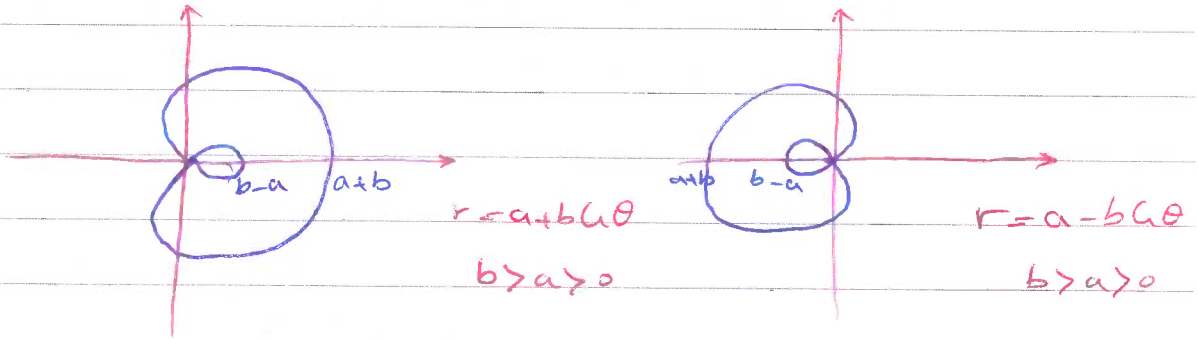 b-a a+b
r=a+bGθ
b>a>0
a+b b-a
r=a-bGθ
b>a>0